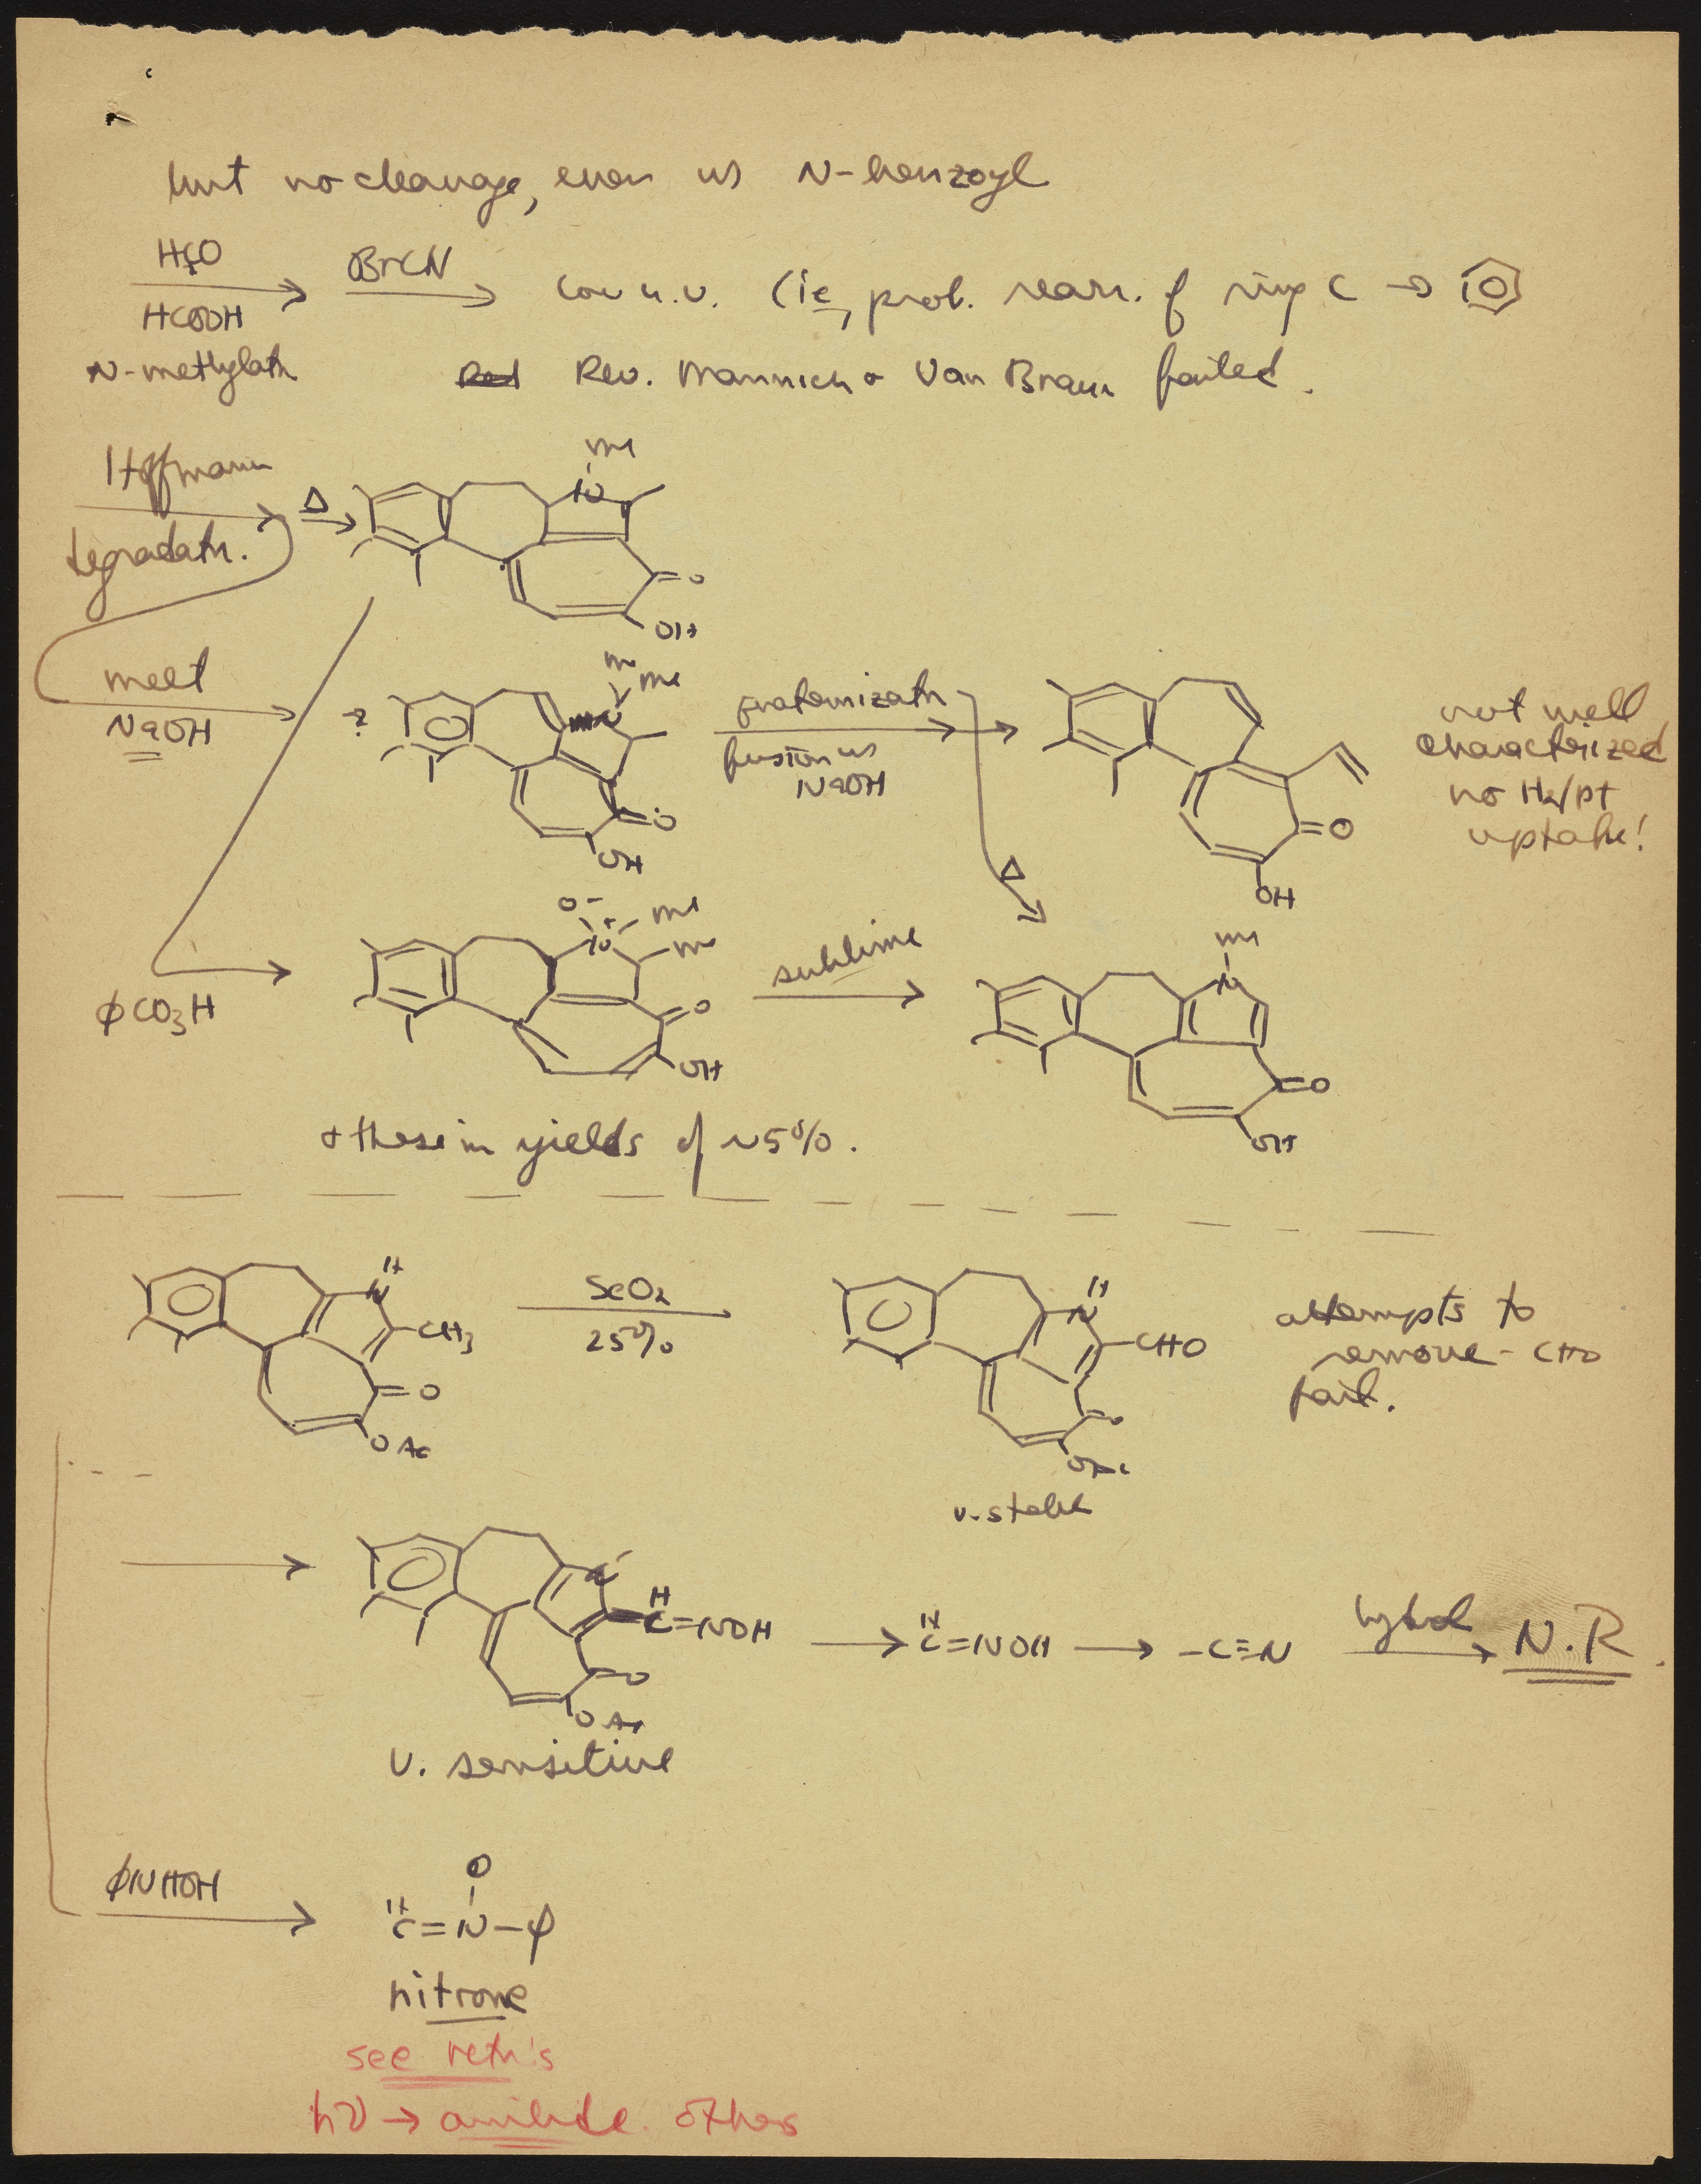 but no cleavage, even w N-benzoyl
H₂CO
HCOOH
N-methylatn
BrCN
low u.v. (ie, prob. rearr. of ring C →
Rev. Mannich + Van Braun failed.
Hoffmann
degradatn.
Δ
Me
N
O
OH
melt
NaOH
?
Me
Me
N
O
OH
quaternizatn
fusion w
NaOH
O
OH
not well
characterized
no H₂/Pt
uptake!
Δ
ϕCO₃H
O⁻
N⁺
Me
Me
O
OH
sublime
Me
N
O
OH
+ these in yields of ~5%.
H
N
CH₃
O
OAc
SeO₂
25%
H
N
CHO
O
OAc
v. stable
attempts to
remove -CHO
fail.
N
H
C=NOH
O
OAc
v. sensitive
→ H
C=NOH → -C≡N
hydrol
N.R.
ϕNHOH
O
H
C=N-ϕ
nitrone
see retn's
hν → anilide. others